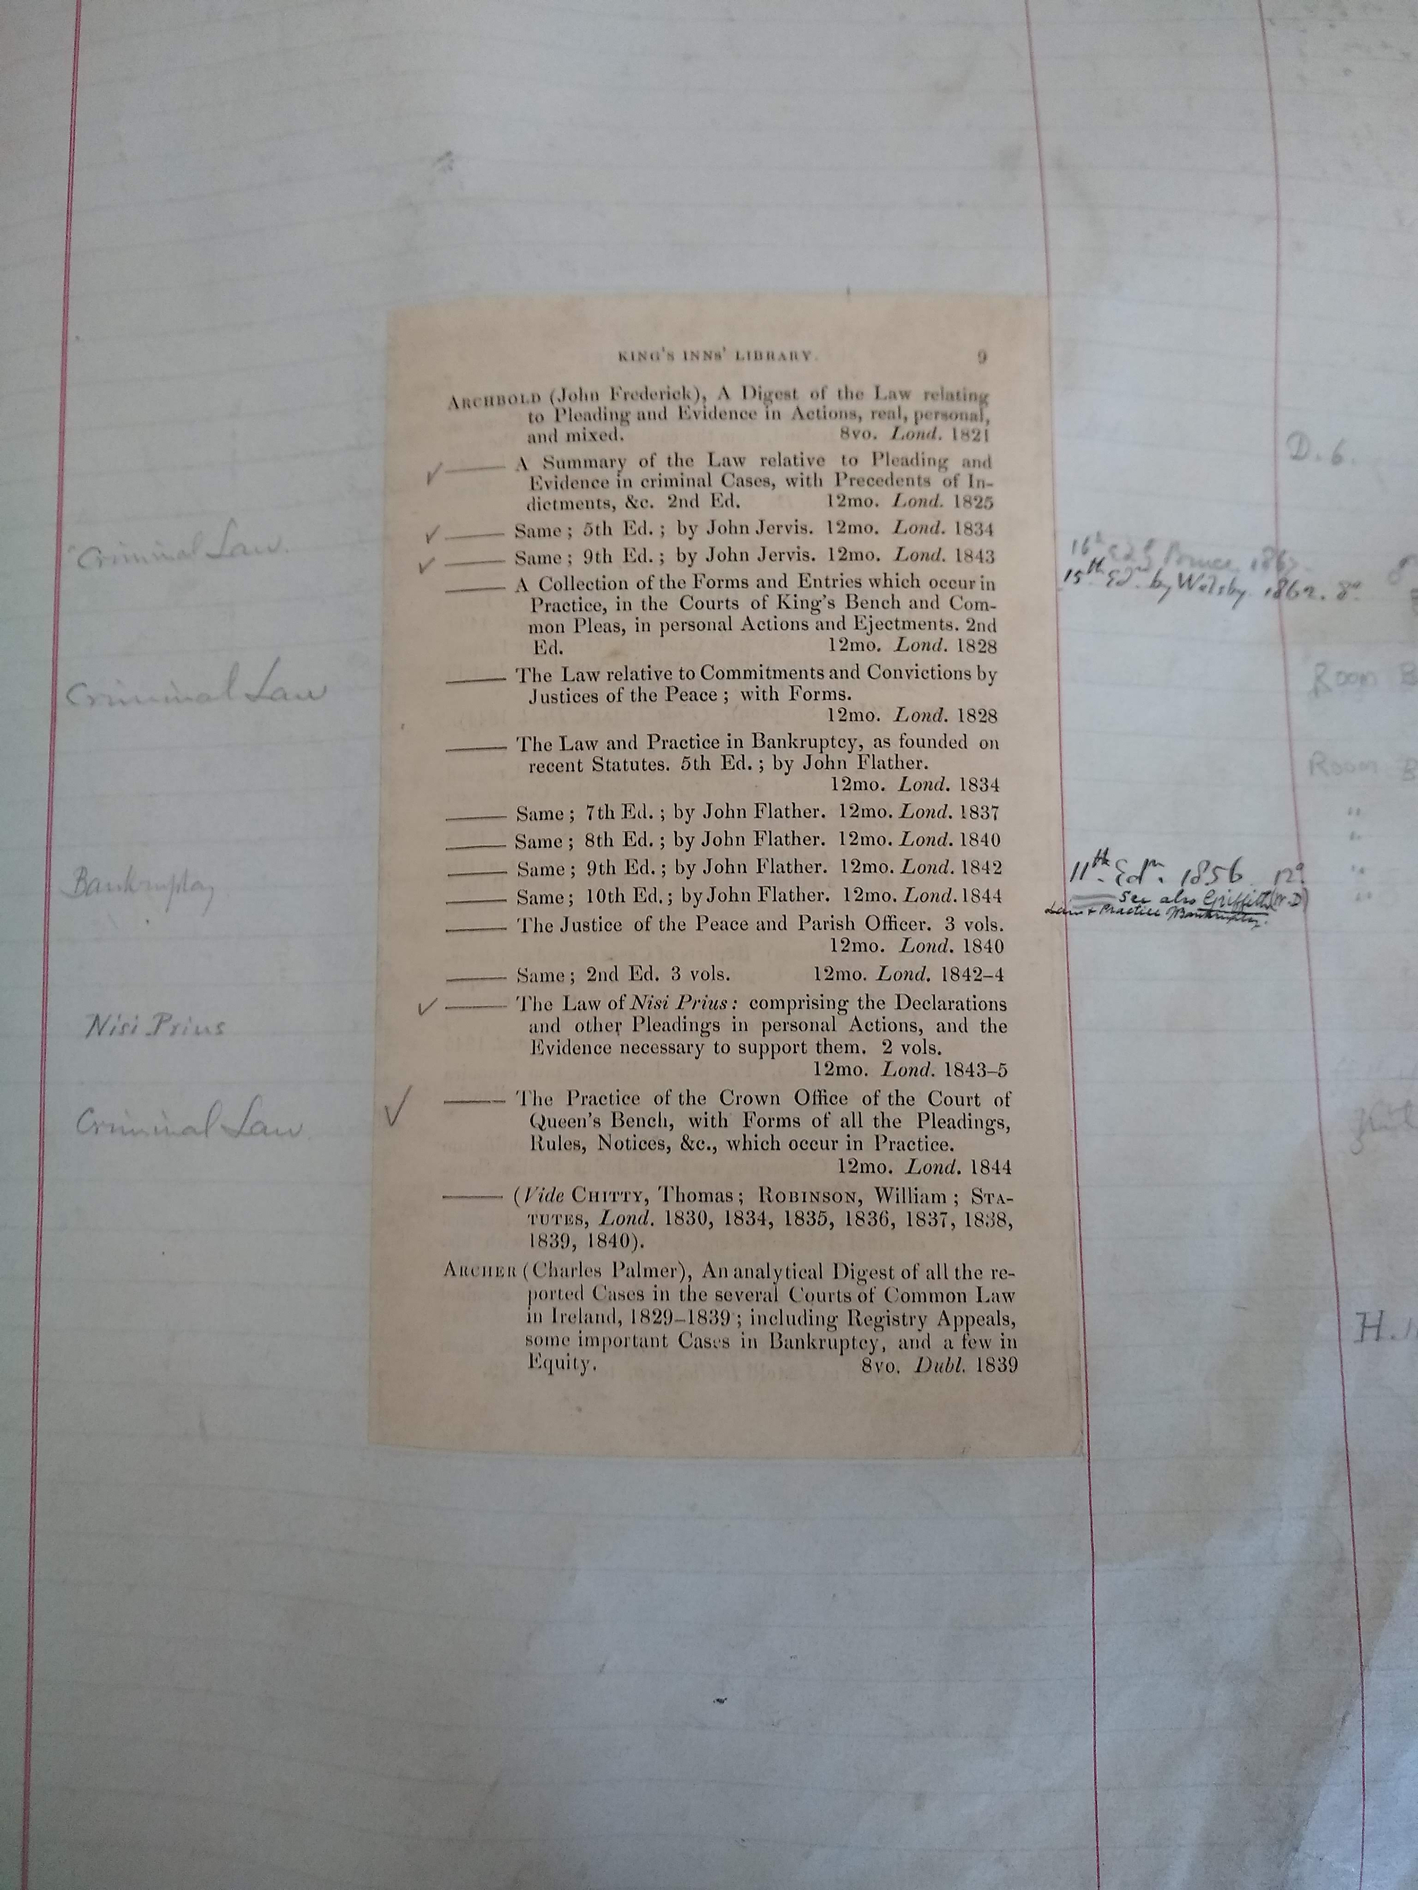 KING'S INNS' LIBRARY. 9
ARCHBOLD (John Frederick), A Digest of the Law relating
to Pleading and Evidence in Actions, real, personal,
and mixed. 8vo. Lond. 1821
D. 6.
✓ —— A Summary of the Law relative to Pleading and
Evidence in criminal Cases, with Precedents of In-
dictments, &c. 2nd Ed. 12mo. Lond. 1825
✓ —— Same; 5th Ed.; by John Jervis. 12mo. Lond. 1834
Criminal Law. ✓ —— Same; 9th Ed.; by John Jervis. 12mo. Lond. 1843
16th Ed. Bruce
15th Edn. by Welsby. 1862. 8o
—— A Collection of the Forms and Entries which occur in
Practice, in the Courts of King's Bench and Com-
mon Pleas, in personal Actions and Ejectments. 2nd
Ed. 12mo. Lond. 1828
Criminal Law —— The Law relative to Commitments and Convictions by Room B
Justices of the Peace; with Forms.
12mo. Lond. 1828
—— The Law and Practice in Bankruptcy, as founded on
recent Statutes. 5th Ed.; by John Flather. Room B
12mo. Lond. 1834
—— Same; 7th Ed.; by John Flather. 12mo. Lond. 1837 "
—— Same; 8th Ed.; by John Flather. 12mo. Lond. 1840 "
—— Same; 9th Ed.; by John Flather. 12mo. Lond. 1842 11th Edn. 1856 12o "
Bankruptcy —— Same; 10th Ed.; by John Flather. 12mo. Lond. 1844 See also Griffith (W. D) "
Law & Practice Bankruptcy.
—— The Justice of the Peace and Parish Officer. 3 vols.
12mo. Lond. 1840
—— Same; 2nd Ed. 3 vols. 12mo. Lond. 1842–4
Nisi Prius ✓ —— The Law of Nisi Prius: comprising the Declarations
and other Pleadings in personal Actions, and the
Evidence necessary to support them. 2 vols.
12mo. Lond. 1843–5
Criminal Law. ✓ —— The Practice of the Crown Office of the Court of
Queen's Bench, with Forms of all the Pleadings,
Rules, Notices, &c., which occur in Practice.
12mo. Lond. 1844
—— (Vide CHITTY, Thomas; ROBINSON, William; STA-
TUTES, Lond. 1830, 1834, 1835, 1836, 1837, 1838,
1839, 1840).
ARCHER (Charles Palmer), An analytical Digest of all the re-
ported Cases in the several Courts of Common Law
in Ireland, 1829–1839; including Registry Appeals, H.
some important Cases in Bankruptcy, and a few in
Equity. 8vo. Dubl. 1839